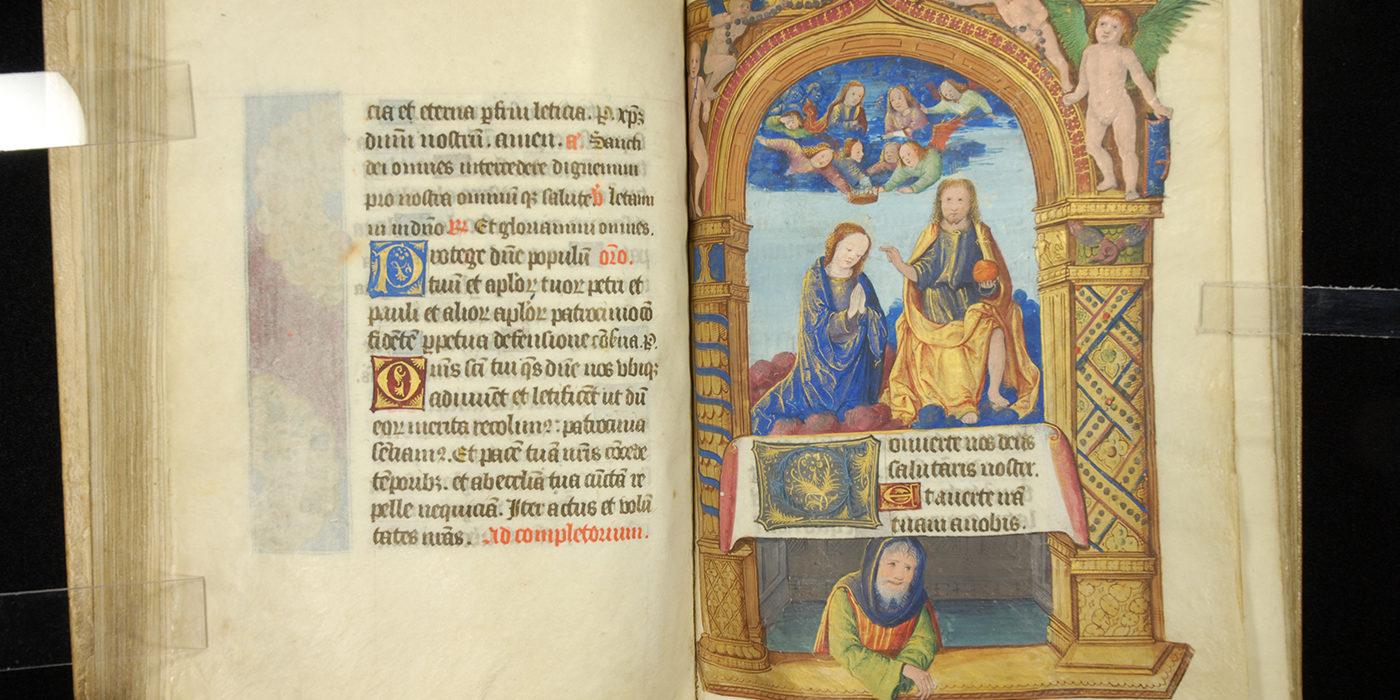 cia et eterna ꝑfrui leticia. P. xp̄ꝫ
dūm nostrū. amen. a͠ Sancti
dei omnes intercedere dignemini
pro nostra omniū qꝫ salute ꝟ letami
ni in dn̄o R. Et gloriamini omnes.
Protege dn̄e populū or̄o.
tuū et apl̄oꝝ tuoꝝ petri et
pauli et alioꝝ apl̄oꝝ patrocinio cō
fidētē ꝑpetua defensione cōẜua. P.
Om̄s sc̄i tui q̄s dn̄e nos vbiqꝫ
adiuuent et letificēt ut dū
eoꝝ merita recolimꝰ: patrocinia
sētiamꝰ. Et pacē tuā nr̄is cōcede
tēporibꝫ. et ab ecclīa tua cūcta re
pelle nequiciā. Iter actus et volū
tates nr̄as. Ad completorium.
Conuerte nos deus
salutaris noster.
Et auerte irā
tuam a nobis.